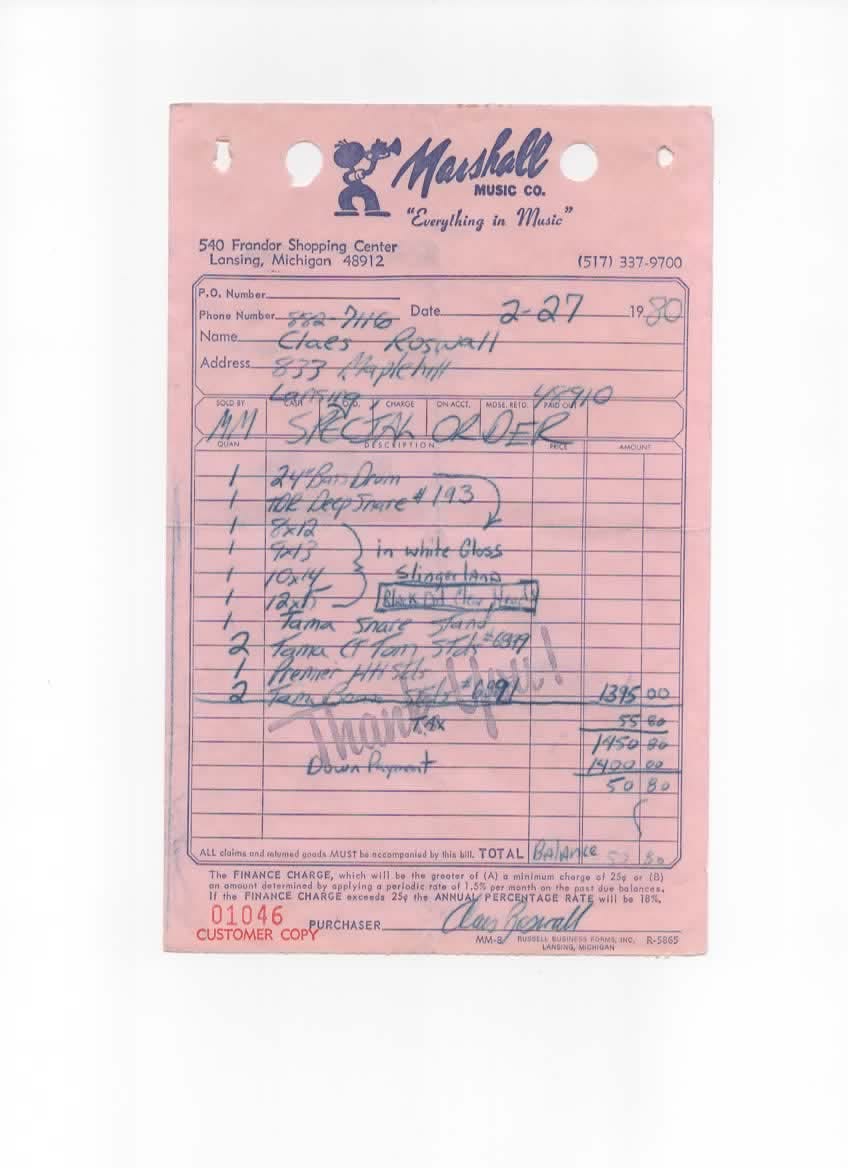 Marshall
MUSIC CO.
"Everything in Music"
540 Frandor Shopping Center
Lansing, Michigan 48912
(517) 337-9700
P.O. Number
Phone Number 882-7116
Date 2-27 1980
Name Claes Roswall
Address 833 Maplehill
Lansing, 48910
SOLD BY CASH C.O.D. CHARGE ON ACCT. MDSE. RETD. PAID OUT
MM SPECIAL ORDER
QUAN DESCRIPTION PRICE AMOUNT
1 24" Bass Drum
1 TDR Deep Snare #193
1 8x12
1 9x13 in white Gloss
1 10x14 Slingerland
1 12x15 Black Dot Clear Heads
1 Tama Snare Stand
2 Tama CT Tom Stds #6899
1 Premier HH Sds
2 Tama Stds #6891 1395 00
Thank You!
TAX 55 80
1450 80
Down Payment 1400 00
50 80
ALL claims and returned goods MUST be accompanied by this bill. TOTAL Balance 50 80
The FINANCE CHARGE, which will be the greater of (A) a minimum charge of 25¢ or (B)
an amount determined by applying a periodic rate of 1.5% per month on the past due balances.
If the FINANCE CHARGE exceeds 25¢ the ANNUAL PERCENTAGE RATE will be 18%.
01046
CUSTOMER COPY
PURCHASER Claes Roswall
MM-8 RUSSELL BUSINESS FORMS, INC. R-5865
LANSING, MICHIGAN